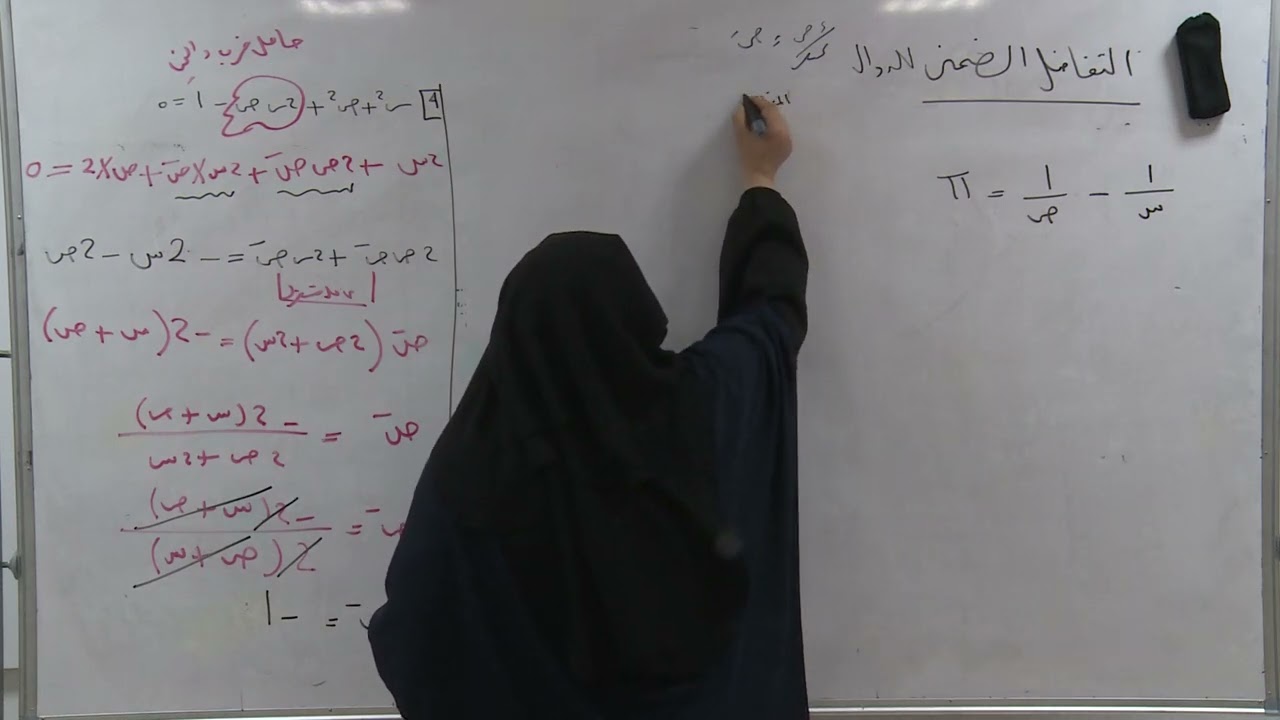 التفاضل الضمني للدوال
١/س - ١/ص = π
حاصل ضرب دالتين
4 س² + ص² + 2س ص - 1 = 0
2س + 2ص ص¯ + 2س × ص¯ + ص × 2 = 0
2ص ص¯ + 2س ص¯ = - 2س - 2ص
عامل مشترك
ص¯ (2ص + 2س) = - 2 (س + ص)
ص¯ = - 2 (س + ص) / 2ص + 2س
ص¯ = - 2 (س + ص) / 2 (ص + س)
= - 1